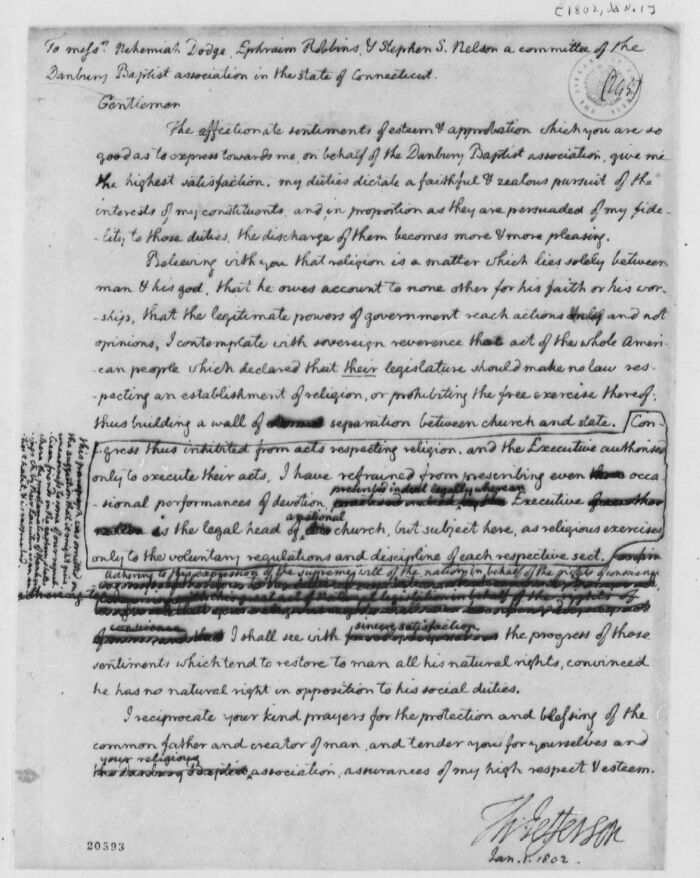 [1802, Jan. 1]
To messrs. Nehemiah Dodge, Ephraim Robbins, & Stephen S. Nelson a committee of the
Danbury Baptist association in the state of Connecticut.
Gentlemen
The affectionate sentiments of esteem & approbation which you are so
good as to express towards me, on behalf of the Danbury Baptist association, give me
the highest satisfaction. my duties dictate a faithful & zealous pursuit of the
interests of my constituents, and in proportion as they are persuaded of my fide-
-lity to those duties, the discharge of them becomes more & more pleasing.
Believing with you that religion is a matter which lies solely between
man & his god, that he owes account to none other for his faith or his wor-
-ship, that the legitimate powers of government reach actions only and not
opinions, I contemplate with sovereign reverence that act of the whole Ameri-
-can people which declared that their legislature should make no law res-
-pecting an establishment of religion, or prohibiting the free exercise thereof;
thus building a wall of separation between church and state. [Con-
-gress thus inhibited from acts respecting religion, and the Executive authorised
only to execute their acts, I have refrained from prescribing even occa
-sional performances of devotion,
prescribed indeed legally where an
Executive
is the legal head of
a national
church, but subject here, as religious exercises
only to the voluntary regulations and discipline of each respective sect.
this paragraph was omitted
Adhering to this expression of the supreme will of the nation in behalf of the rights of conscience
I shall see with
sincere satisfaction
the progress of those
sentiments which tend to restore to man all his natural rights, convinced
he has no natural right in opposition to his social duties.
I reciprocate your kind prayers for the protection and blessing of the
common father and creator of man, and tender you for yourselves and
your religious
the Danbury Baptist association, assurances of my high respect & esteem.
Th Jefferson
Jan. 1. 1802.
20593